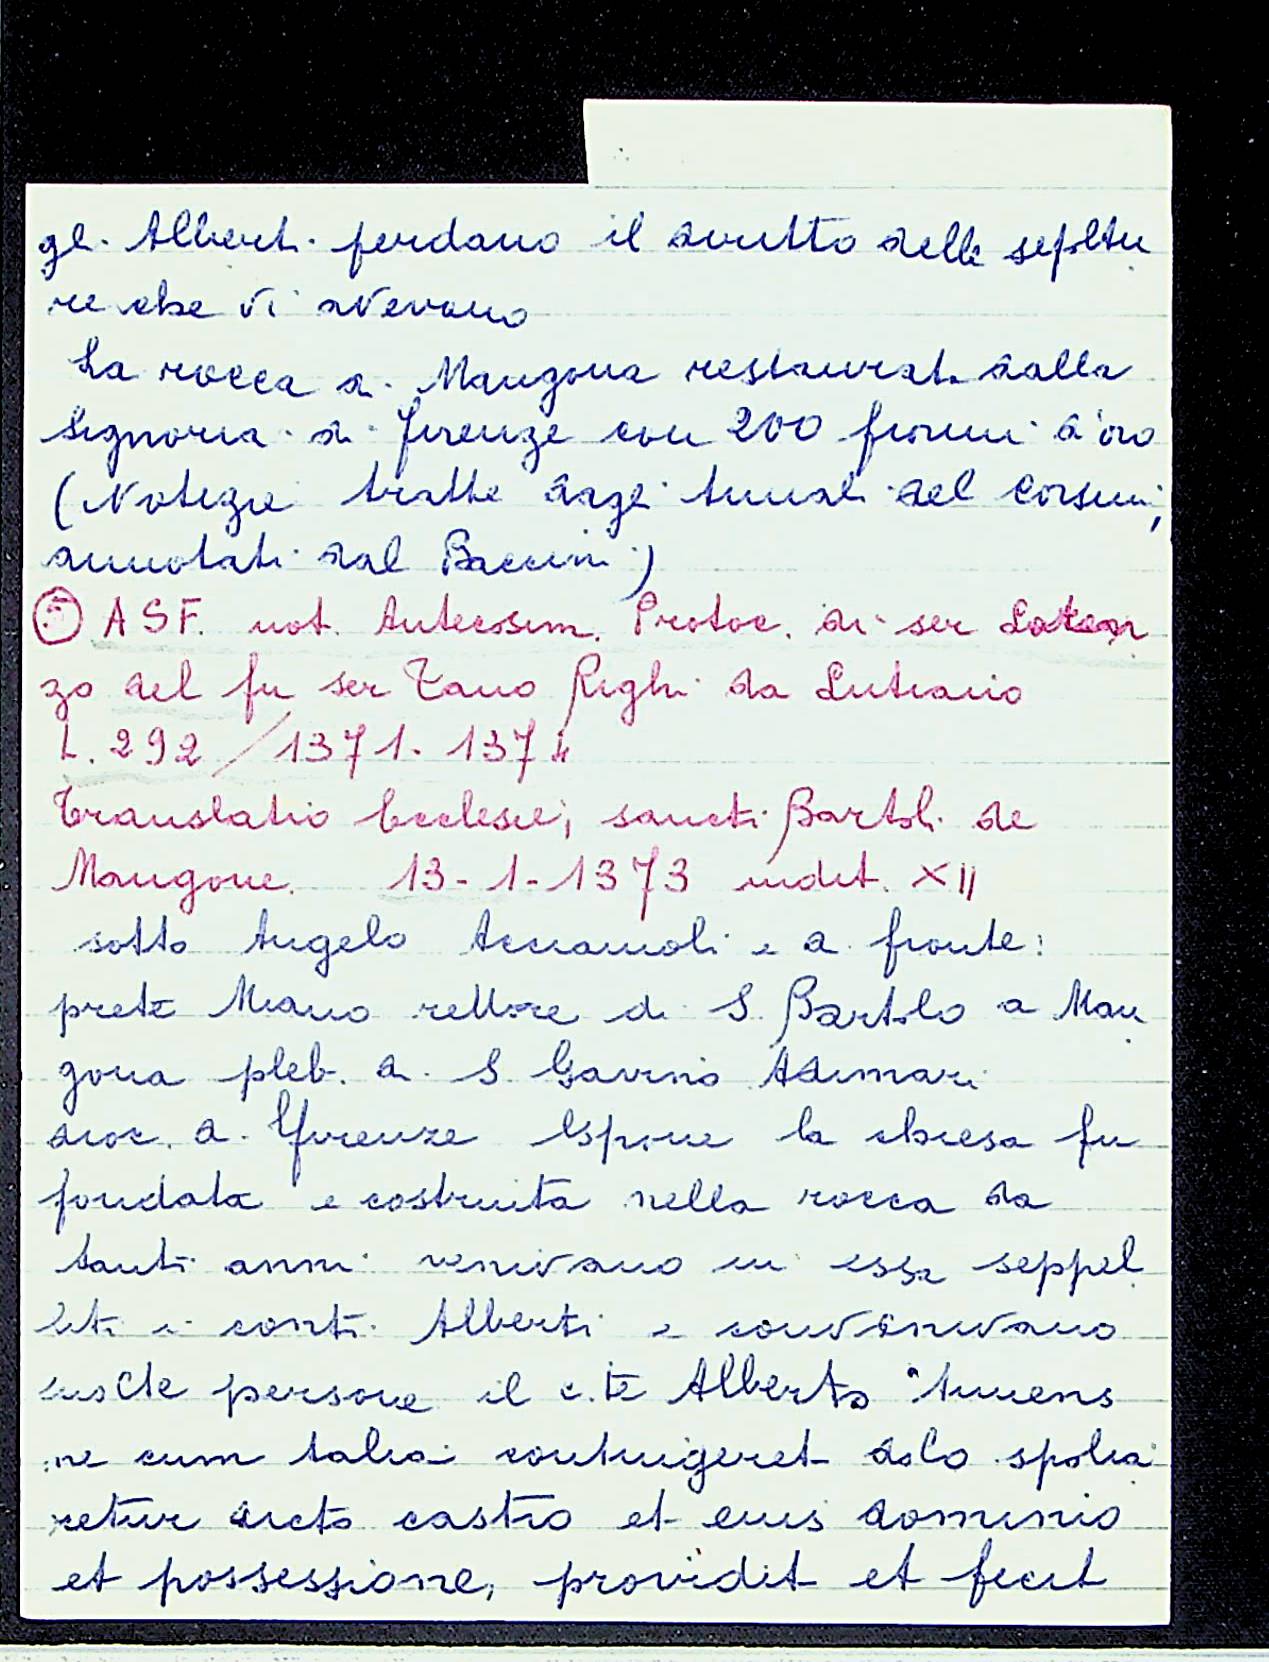 gl. Alberti perdano il diritto delle sepoltu
re che vi avevano
La rocca di Mangona restaurat. dalla
Signoria di Firenze con 200 fiorini d'oro
(Notizie tratte dagli Annali del Corsini,
annotati dal Baccini)
⑤ ASF. not. Antecosim. Protoc. di ser Loren
zo del fu ser Tano Righi da Lutiano
L. 292 / 1371-1374
Translatio Ecclesie, sancti Bartoli de
Mangone. 13-1-1373 indit. XII
sotto Angelo Acciaiuoli e a fronte:
prete Miano rettore di S. Bartolo a Man
gona pleb. di S Gavino Adimari
dioc. di Firenze espone la chiesa fu
fondata e costruita nella rocca da
tanti anni venivano in essa seppel
liti i conti Alberti e convenivano
molte persone il c.te Alberto "timens
ne cum talia contingeret dolo spolia
retur dicto castro et eius dominio
et possessione, providit et fecit